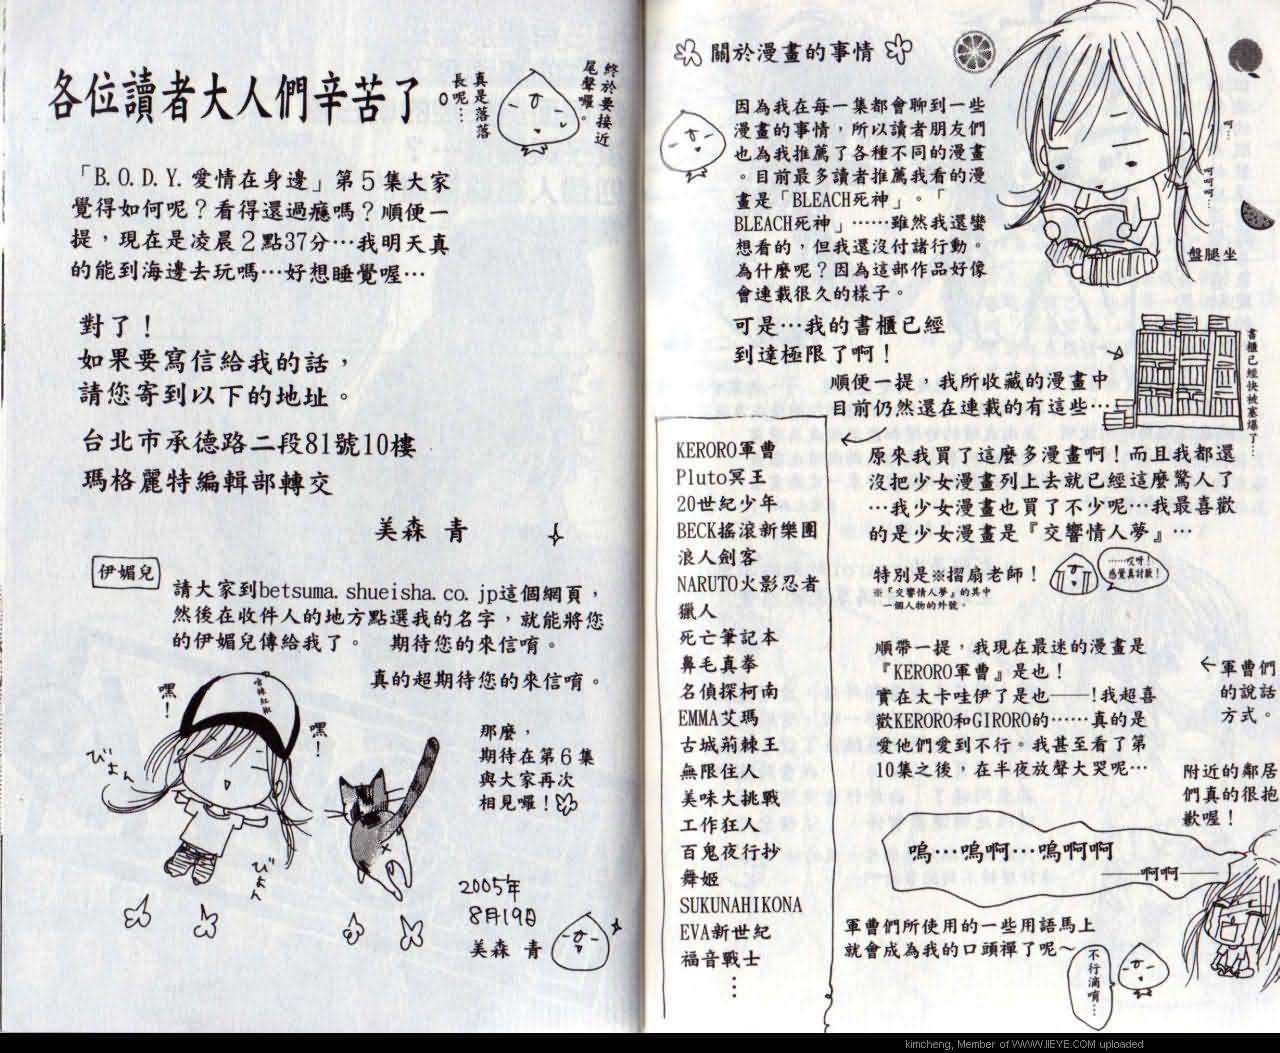 各位讀者大人們辛苦了
真是落落
長呢…。
終於要接近
尾聲囉。
「B.O.D.Y.愛情在身邊」第5集大家
覺得如何呢？看得還過癮嗎？順便一
提，現在是凌晨2點37分…我明天真
的能到海邊去玩嗎…好想睡覺喔…
對了！
如果要寫信給我的話，
請您寄到以下的地址。
台北市承德路二段81號10樓
瑪格麗特編輯部轉交
美森 青
伊媚兒
請大家到betsuma.shueisha.co.jp這個網頁，
然後在收件人的地方點選我的名字，就能將您
的伊媚兒傳給我了。 期待您的來信唷。
真的超期待您的來信唷。
嘿！
嘿！
びょん
びょん
那麼，
期待在第6集
與大家再次
相見囉！
2005年
8月19日
美森 青
關於漫畫的事情
因為我在每一集都會聊到一些
漫畫的事情，所以讀者朋友們
也為我推薦了各種不同的漫畫
。目前最多讀者推薦我看的漫
畫是「BLEACH死神」。「
BLEACH死神」……雖然我還蠻
想看的，但我還沒付諸行動。
為什麼呢？因為這部作品好像
會連載很久的樣子。
呵…
呵呵呵…
盤腿坐
可是…我的書櫃已經
到達極限了啊！
書櫃已經快被塞爆了…
順便一提，我所收藏的漫畫中
目前仍然還在連載的有這些…
KERORO軍曹
Pluto冥王
20世紀少年
BECK搖滾新樂團
浪人劍客
NARUTO火影忍者
獵人
死亡筆記本
鼻毛真拳
名偵探柯南
EMMA艾瑪
古城荊棘王
無限住人
美味大挑戰
工作狂人
百鬼夜行抄
舞姬
SUKUNAHIKONA
EVA新世紀
福音戰士
⋮
原來我買了這麼多漫畫啊！而且我都還
沒把少女漫畫列上去就已經這麼驚人了
…我少女漫畫也買了不少呢…我最喜歡
的是少女漫畫是『交響情人夢』…
特別是※摺扇老師！
※『交響情人夢』的其中
一個人物的外號。
……哎呀！
感覺真討厭！
順帶一提，我現在最迷的漫畫是
『KERORO軍曹』是也！
實在太卡哇伊了是也──！我超喜
歡KERORO和GIRORO的……真的是
愛他們愛到不行。我甚至看了第
10集之後，在半夜放聲大哭呢…
←軍曹們
的說話
方式。
附近的鄰居
們真的很抱
歉喔！
嗚…嗚啊…嗚啊啊
──啊啊──
軍曹們所使用的一些用語馬上
就會成為我的口頭禪了呢～
不行滴唷…
kimcheng, Member of WWW.IIEYE.COM uploaded